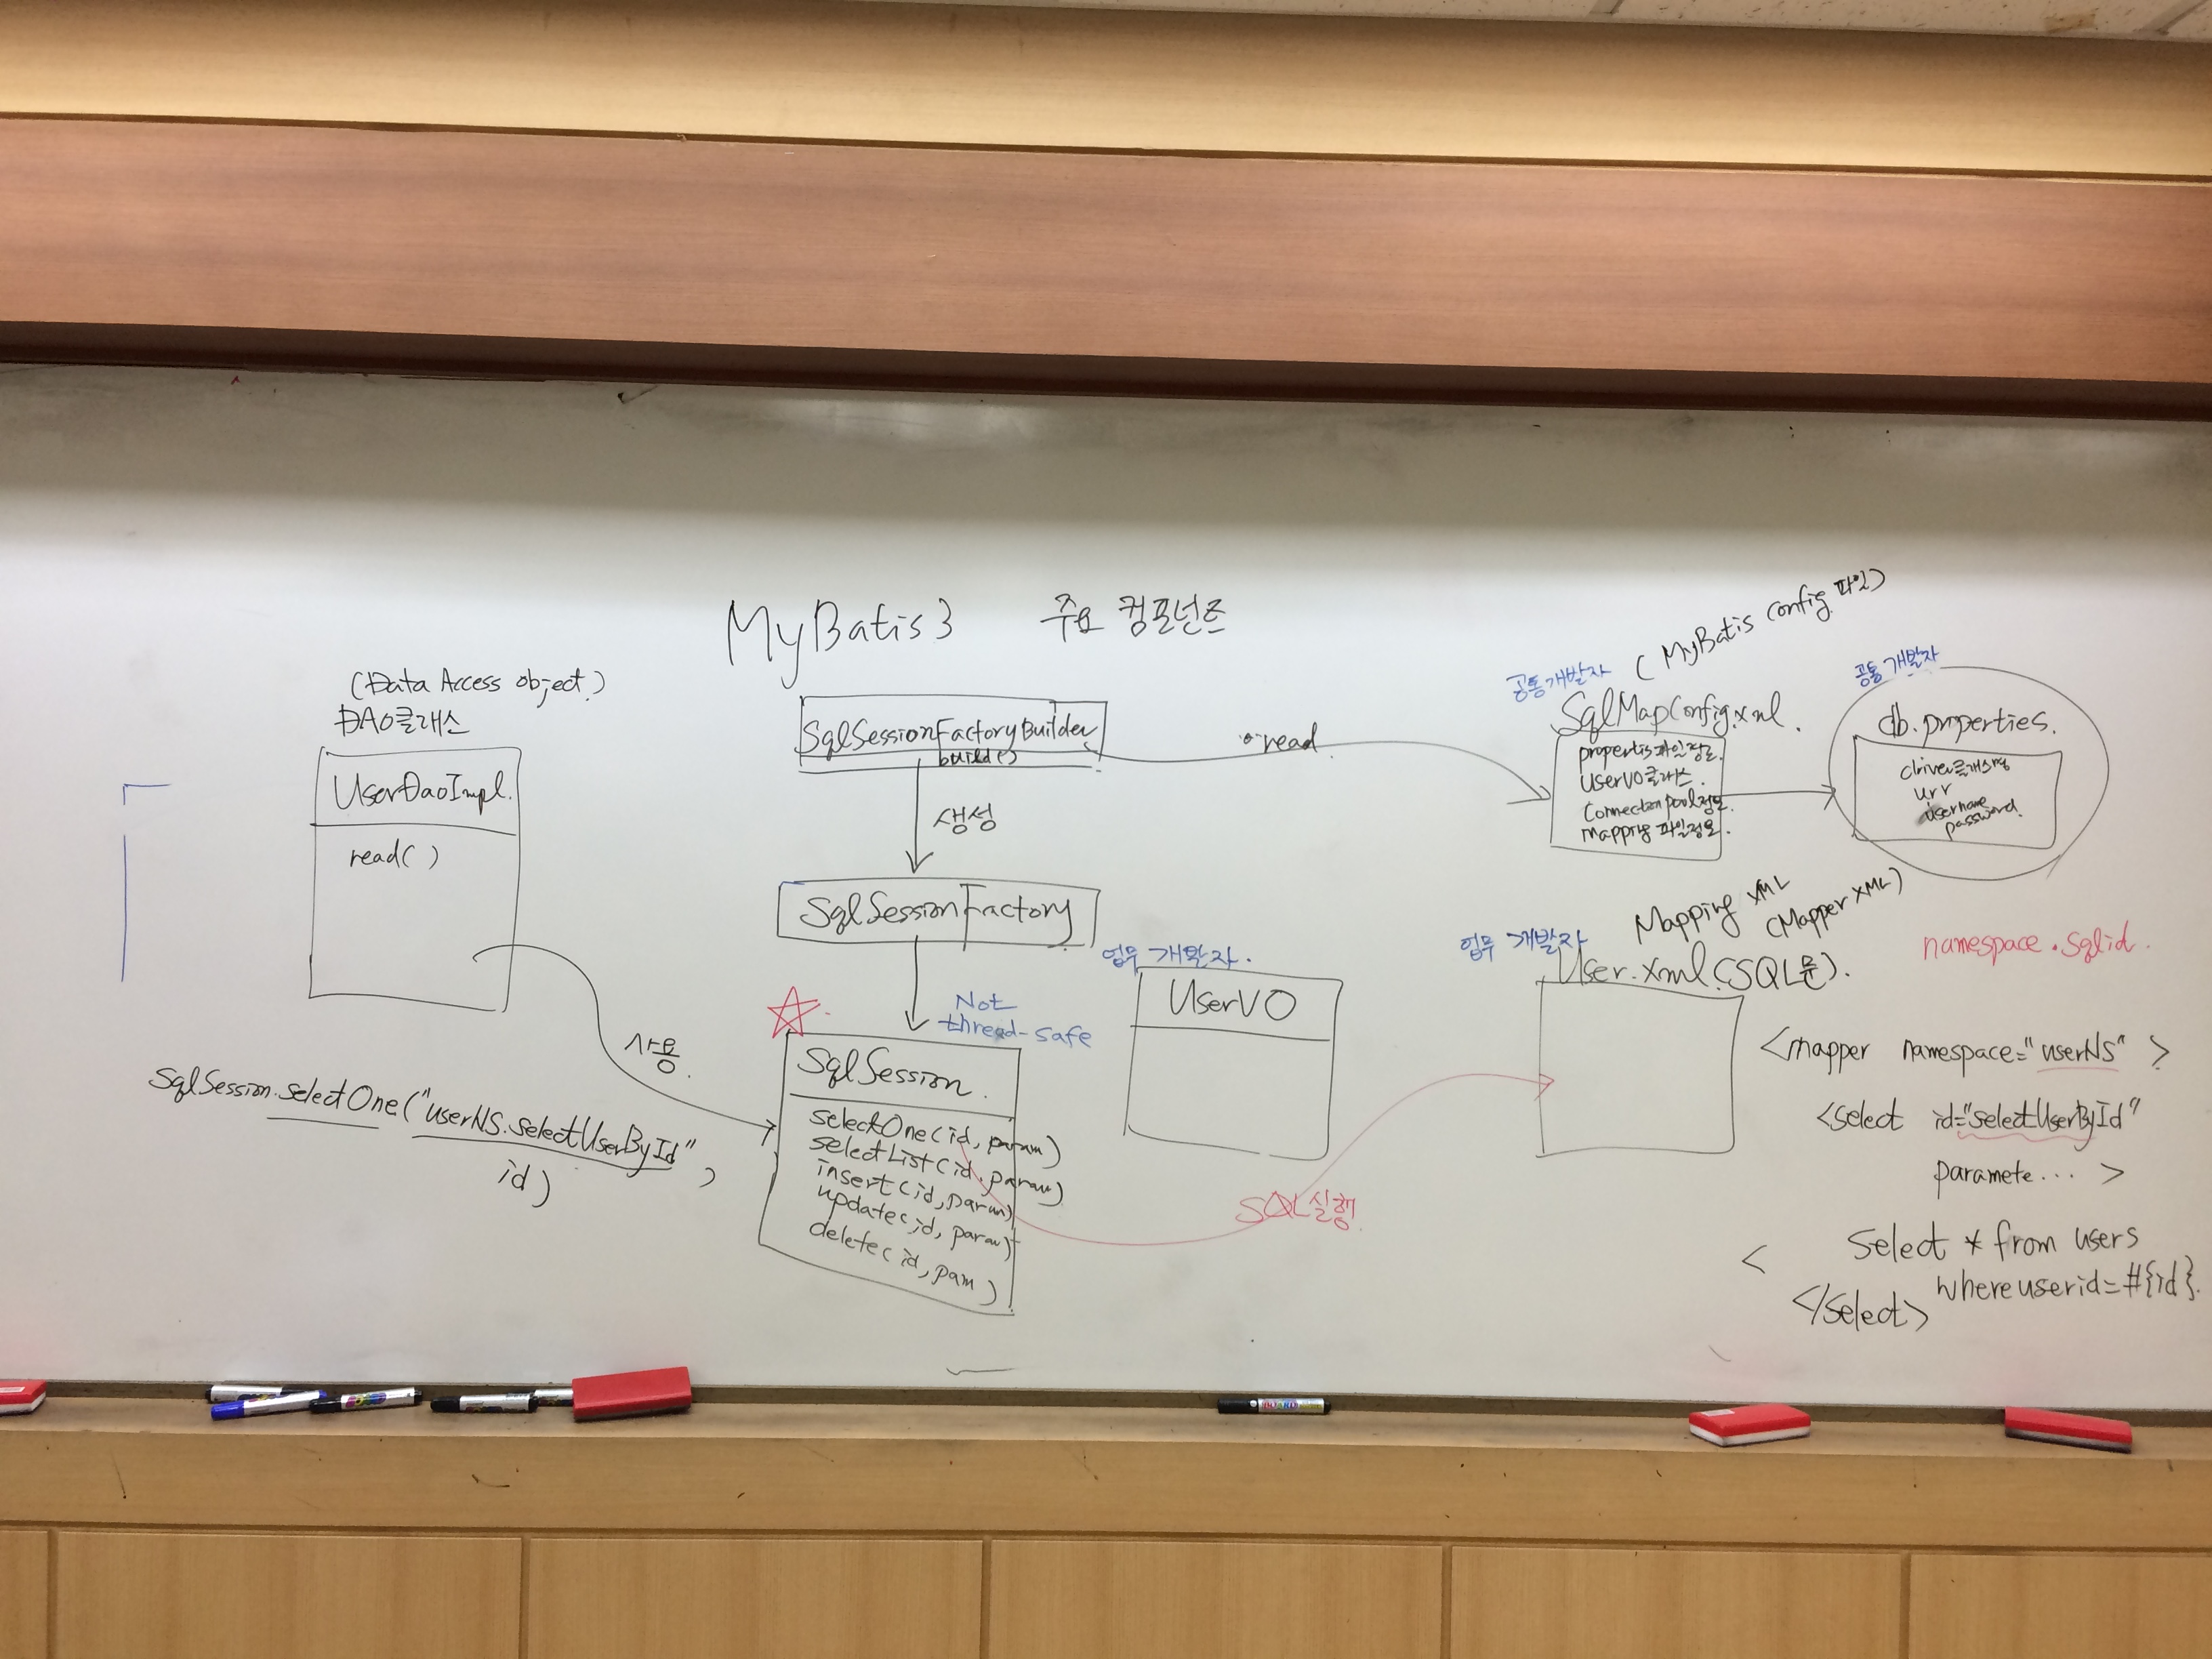 MyBatis3 주요 컴포넌트
(Data Access object)
DAO클래스
UserDaoImpl.
read( )
사용
SqlSession.selectOne("userNS.selectUserById",
id)
SqlSessionFactoryBuilder
build()
read
생성
SqlSessionFactory
Not
thread-safe
SqlSession.
selectOne(id, param)
selectList(id, param)
insert(id, param)
update(id, param)
delete(id, pam)
업무 개발자.
UserVO
SQL실행
공통개발자
(MyBatis Config 파일)
SqlMapConfig.xml.
propertis파일정보.
UserVO클래스.
Connection pool정보.
mapping 파일정보.
공통개발자
db.properties.
driver클래스명
url
username
password.
Mapping XML
(Mapper XML)
업무 개발자
User.xml(SQL문).
namespace.sqlid.
<mapper namespace="userNS" >
<select id="selectUserById"
paramete... >
select * from users
where userid=#{id}.
<
</select>